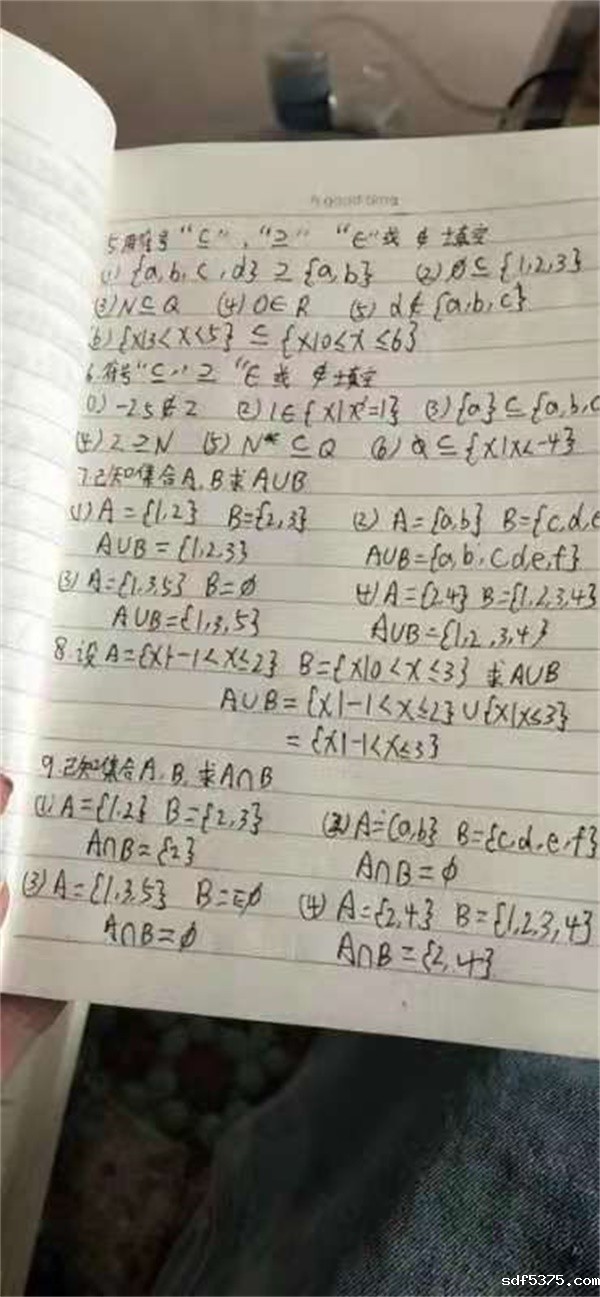 A good time
5.用符号“⊆”,“⊇” “∈”或 ∉ 填空
(1) {a,b,c,d} ⊇ {a,b} (2) ∅ ⊆ {1,2,3}
(3) N ⊆ Q (4) 0 ∈ R (5) d ∉ {a,b,c}
(6) {x|3<x<5} ⊆ {x|0≤x≤6}
6.符号“⊆” ⊇ “∈ 或 ∉ 填空
(1) -2.5 ∉ Z (2) 1∈{x|x²=1} (3) {a} ⊆ {a,b,c
(4) Z ⊇ N (5) N* ⊆ Q (6) ⊆ {x|x<-4}
7.已知集合A,B求A∪B
(1) A={1,2} B={2,3} (2) A={a,b} B={c,d,e
A∪B={1,2,3} A∪B={a,b,c,d,e,f}
(3) A={1,3,5} B=∅ (4) A={2,4} B={1,2,3,4}
A∪B={1,3,5} A∪B={1,2,3,4}
8.设A={x|-1<x≤2} B={x|0<x≤3} 求A∪B
A∪B={x|-1<x≤2}∪{x|x≤3}
={x|-1<x≤3}
9.已知集合A,B,求A∩B
(1) A={1,2} B={2,3} (2) A={a,b} B={c,d,e,f}
A∩B={2} A∩B=∅
(3) A={1,3,5} B=∅ (4) A={2,4} B={1,2,3,4}
A∩B=∅ A∩B={2,4}
sdf5375.com